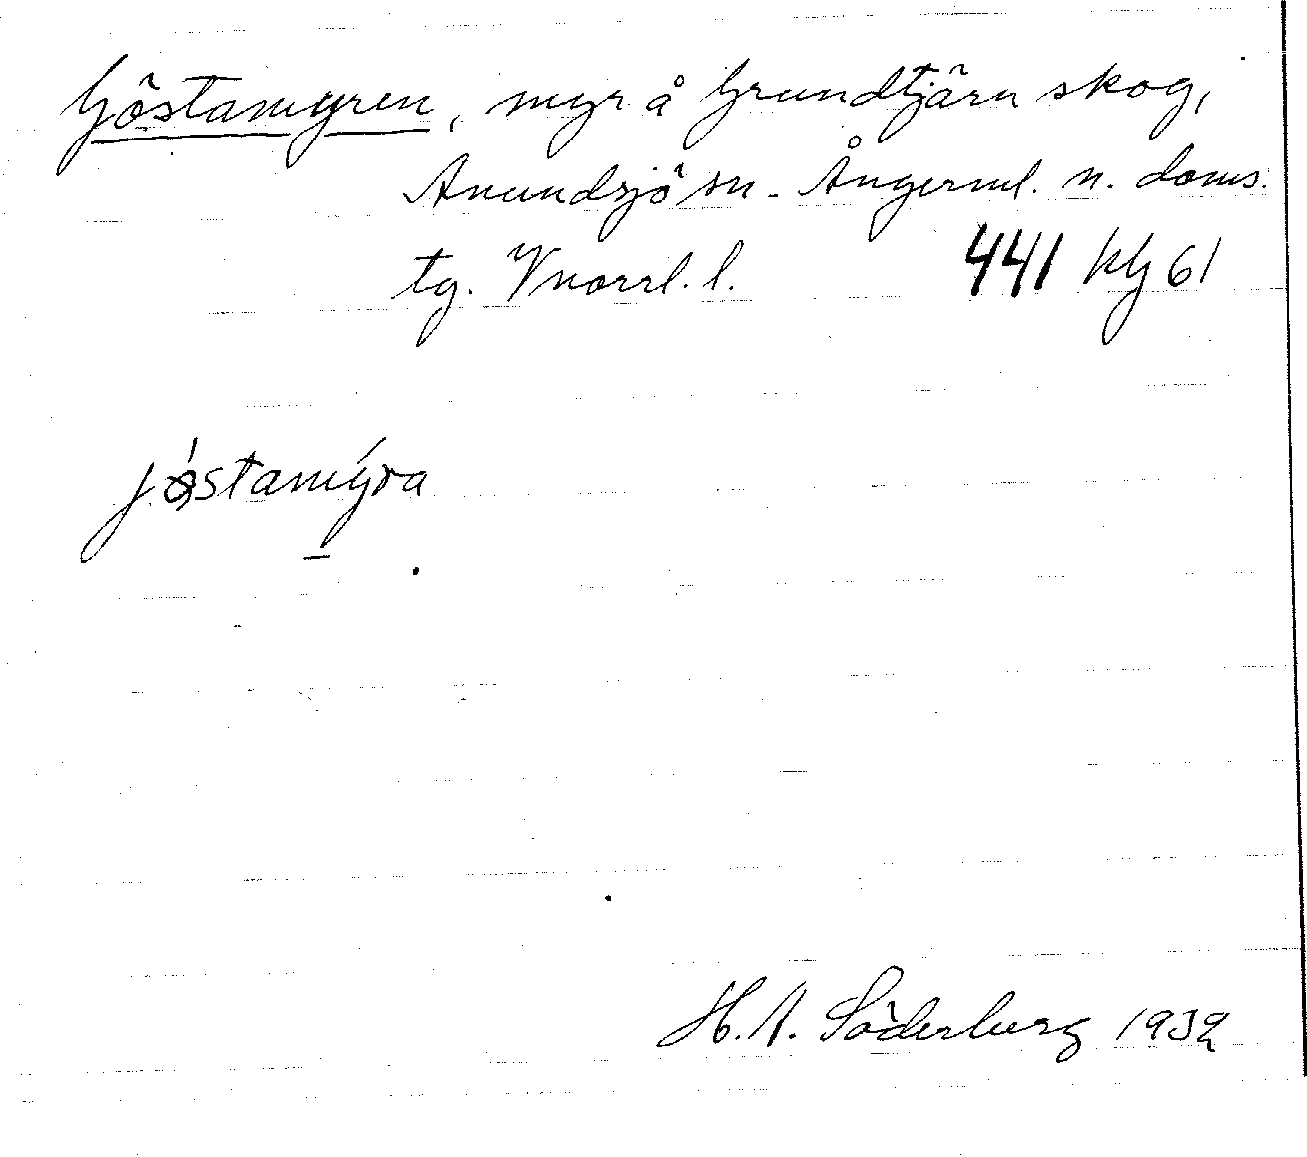 Göstamyren, myr å Grundtjärn skog,
Anundsjö sn. Ångerml. n. doms.
tg. Vnorrl. l. 441 Hg 61
jǿstamýra
H. A. Söderberg 1932